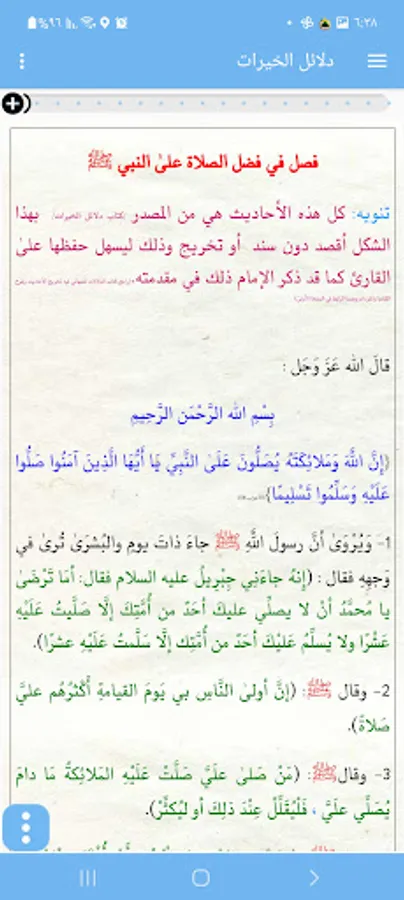 ٦:٢٨ %٩٦
دلائل الخيرات
فصل في فضل الصلاة على النبي ﷺ
تنويه: كل هذه الأحاديث هي من المصدر (كتاب دلائل الخيرات) بهذا
الشكل أقصد دون سند أو تخريج وذلك ليسهل حفظها على
القارئ كما قد ذكر الإمام ذلك في مقدمته
قالَ الله عَزَ وَجَل :
بِسْمِ الله الرَّحْمَنِ الرَّحِيمِ
{إِنَّ اللَّهَ وَمَلَائِكَتَهُ يُصَلُّونَ عَلَى النَّبِيِّ يَا أَيُّهَا الَّذِينَ آمَنُوا صَلُّوا
عَلَيْهِ وَسَلِّمُوا تَسْلِيمًا}
1- وَيُرْوَىٰ أنَّ رسولَ اللَّهِ ﷺ جاءَ ذاتَ يومٍ والبُشرَىٰ تُرىٰ في
وَجهِهِ فقال : (إنَّهُ جاءَني جِبْرِيلُ عليه السلام فقال: أمَا تَرْضَىٰ
يا مُحمَّدُ أنْ لا يصلِّي عليكَ أحَدٌ من أُمَّتِكَ إلَّا صَلَّيتُ عَلَيْهِ
عَشْرًا ولا يُسلِّمُ عَلَيْكَ أحَدٌ من أُمَّتِكَ إلَّا سَلَّمتُ عَلَيْهِ عشرًا).
2- وقال ﷺ: (إنَّ أولىٰ النَّاسِ بي يَومَ القيامةِ أكْثَرُهُم عليَّ
صَلاةً).
3- وقال ﷺ: (مَنْ صَلىٰ علَيَّ صَلَّتْ عَلَيْهِ المَلائِكةُ مَا دامَ
يُصَلِّي علَيَّ ، فَلْيُقَلِّلْ عِنْدَ ذلِكَ أو ليُكثِّرْ).